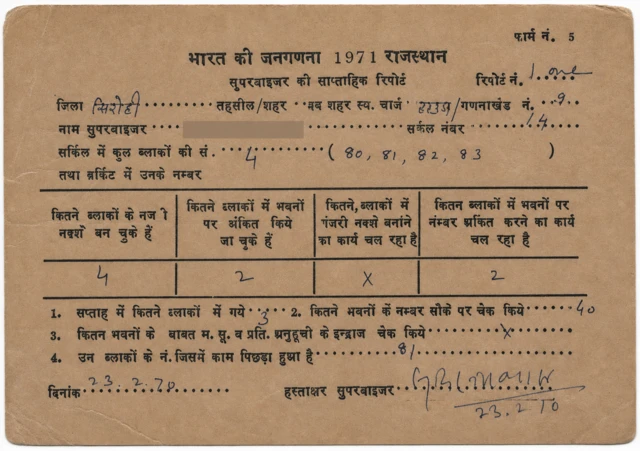 फार्म नं. 5
भारत की जनगणना 1971 राजस्थान
सुपरवाइजर की साप्ताहिक रिपोर्ट रिपोर्ट नं. 1 one
जिला सिरोही तहसील/शहर मब शहर स्य. चार्ज /गणनाखंड नं. 9
नाम सुपरवाईजर सर्कल नंबर 14
सर्किल में कुल ब्लाकों की सं. 4 (80, 81, 82, 83)
तथा ब्रकिट में उनके नम्बर
कितने ब्लाकों के नजरी नक्शे बन चुके हैं
कितने ब्लाकों में भवनों पर अंकित किये जा चुके हैं
कितने, ब्लाकों में गंजरी नक्शे बनाने का कार्य चल रहा है
कितन ब्लाकों में भवनों पर नंम्बर अंकित करने का कार्य चल रहा है
4 2 X 2
1. सप्ताह में कितने ब्लाकों में गये 3 2. कितने भवनों के नम्बर सौके पर चेक किये 40
3. कितन भवनों के बाबत म. सू. व प्रति. अनुसूची के इन्द्राज चेक किये X
4. उन ब्लाकों के नं. जिसमें काम पिछड़ा हुआ है 81
दिनांक 23.2.70 हस्ताक्षर सुपरवाइजर
23.2.70